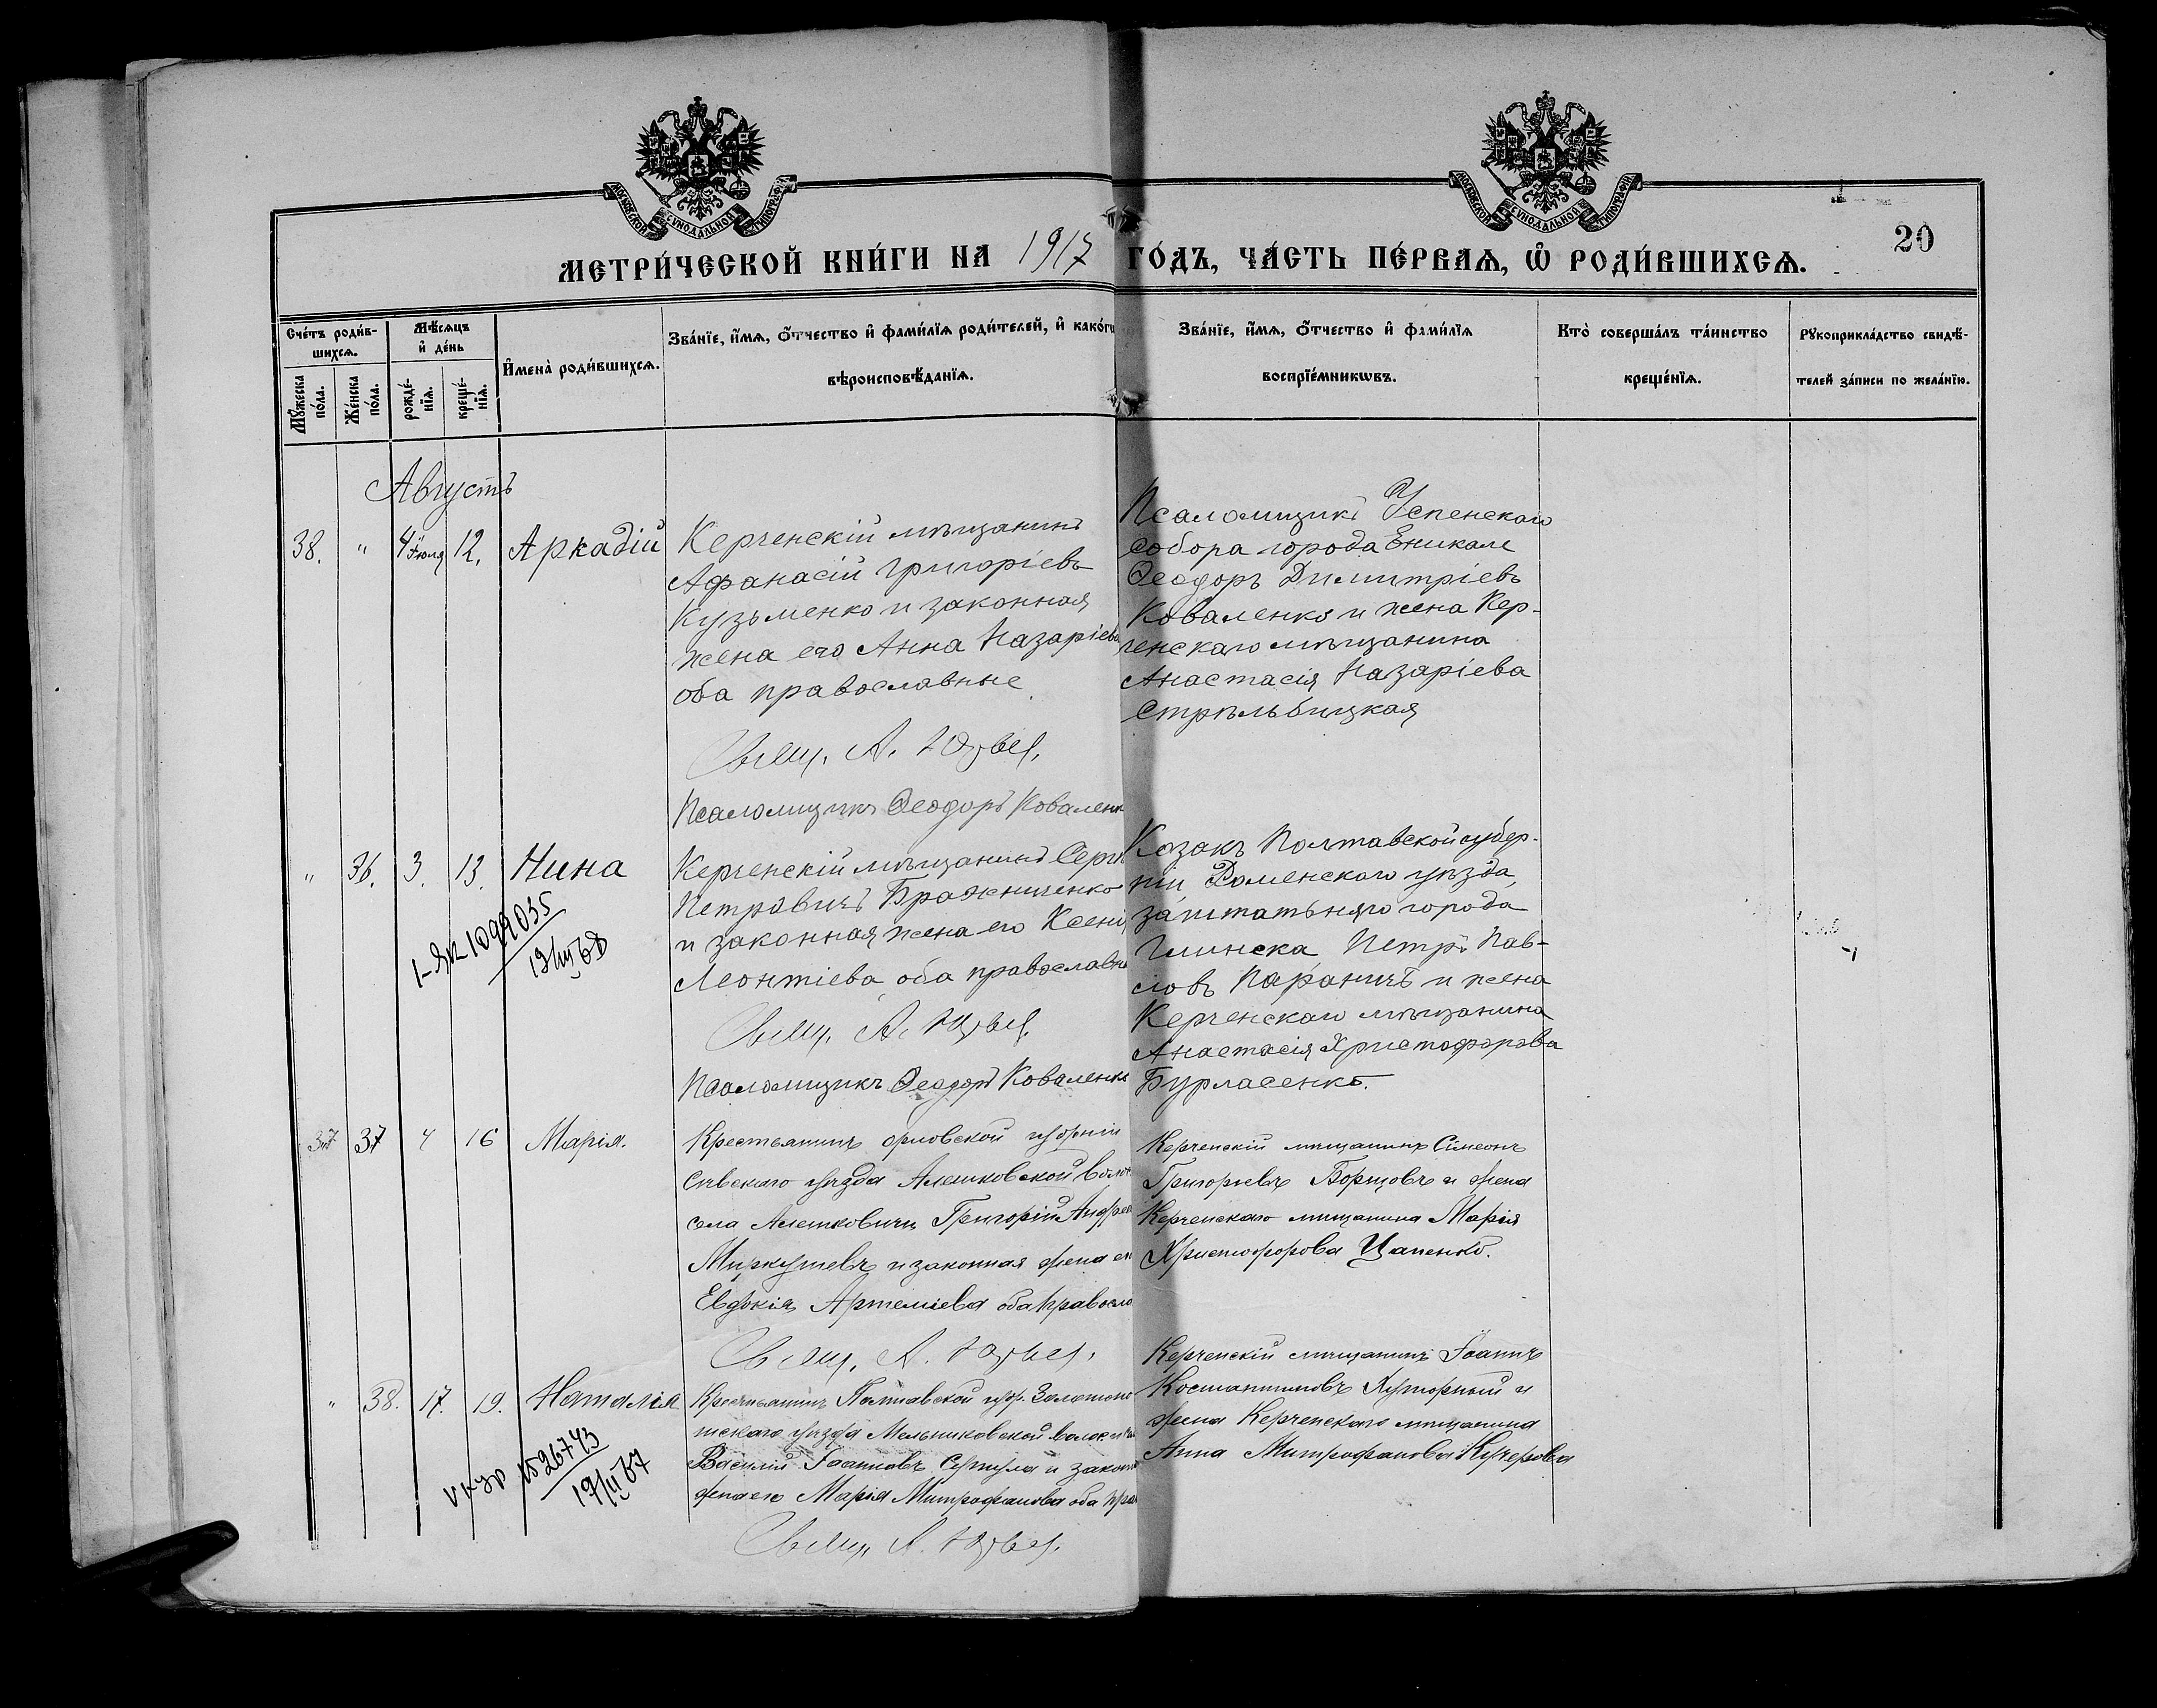 МОСКОВСКОЙ СѴНОДАЛЬНОЙ ТИПОГРАФІИ
МОСКОВСКОЙ СѴНОДАЛЬНОЙ ТИПОГРАФІИ
20
МЕТРИ́ЧЕСКОЙ КНИ́ГИ НА 1917 ГО́ДЪ, ЧА́СТЬ ПЕ́РВАѦ, Ѿ РОДИ́ВШИХСѦ.
Сче́тъ роди́в-
шихсѧ.
Мꙋ́жеска по́ла.
Же́нска по́ла.
Мѣ́сѧцъ
и҆ де́нь
рожде́-
нїѧ.
креще́-
нїѧ.
И҆мена̀ роди́вшихсѧ.
Зва́нїе, и҆́мѧ, ѻ҆́тчество и҆ фами́лїѧ роди́телей, и҆ како́гѡ
вѣроисповѣ́данїѧ.
Зва́нїе, и҆́мѧ, ѻ҆́тчество и҆ фами́лїѧ
воспрїе́мникѡвъ.
Кто̀ соверша́лъ та́инство
креще́нїѧ.
Рꙋкоприкла́дство свидѣ́-
телей за́писи по жела́нїю.
Августъ
38. " 4 Іюля 12. Аркадій
Керченскій мѣщанинъ
Афанасій Григоріевъ
Кузьменко и законная
жена его Анна Назаріева
оба православные
Свящ. А.
Псаломщикъ Ѳеодоръ Коваленк
Псаломщикъ Успенскаго
собора города Еникале
Ѳеодоръ Димитріевъ
Коваленко и жена Кер-
ченскаго мѣщанина
Анастасія Назаріева
Стрѣльбицкая
" 36. 3. 13. Нина
1-ЯК 1099035
19/III 68
Керченскій мѣщанинъ Серг
Петровичъ Бражниченко
и законная жена его Ксенія
Леонтіева, оба православн
Свящ. А.
Псаломщикъ Ѳеодоръ Коваленко
Козакъ Полтавской губер-
ніи Роменскаго уѣзда,
заштатняго города
Глинска Петръ Пав-
ловъ Параничъ и жена
Керченскаго мѣщанина
Анастасія Христофорова
Бурласенко.
37 37 4 16 Марія.
Крестьянинъ Орловской губерніи
Сѣвскаго уѣзда Алешковской вол
села Алешковичи Григорій Андрее
и законная жена ег
Евдокія Артеміева оба правосла
Свящ. А.
Керченскій мѣщанинъ Сімеонъ
Григорьевъ Борщовъ и жена
Керченскаго мѣщанина Марія
Христофорова Цапенко.
" 38. 17. 19. Наталія
1526743
19/II 67
Крестьянинъ Полтавской губ. Золотоно
шскаго уѣзда Мельниковской волости
Василій Іоанновъ и закон
жена его Марія Митрофанова оба пра
Свящ. А.
Керченскій мѣщанинъ Іоаннъ
Костантиновъ Хуторный и
жена Керченскаго мѣщанина
Анна Митрофанова Кучерова